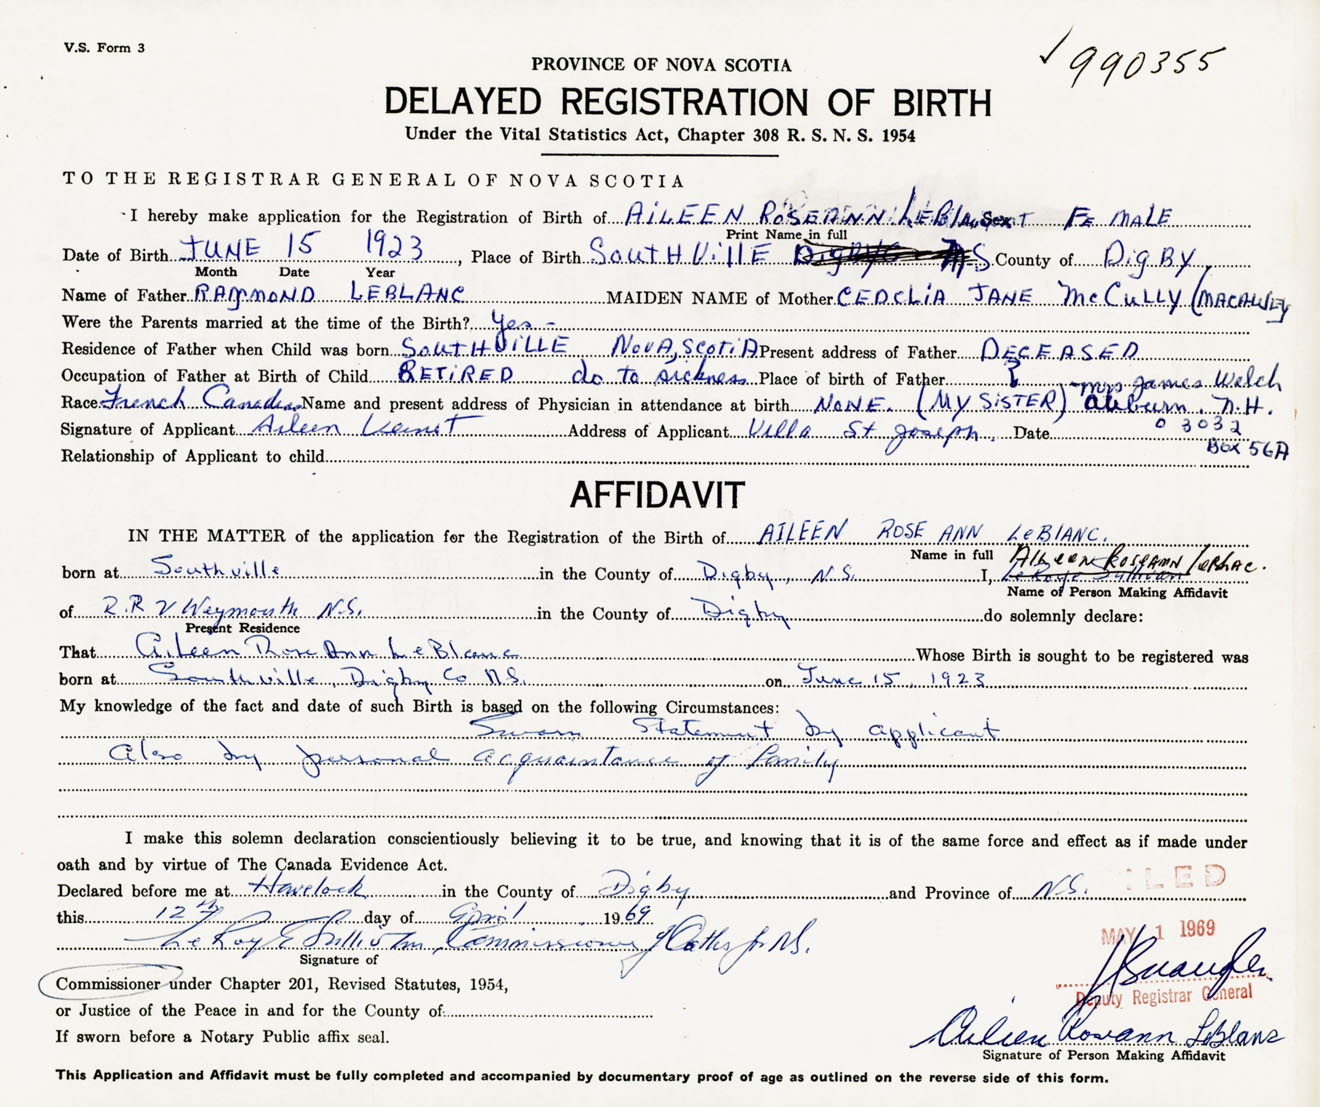 V.S. Form 3
990355
PROVINCE OF NOVA SCOTIA
DELAYED REGISTRATION OF BIRTH
Under the Vital Statistics Act, Chapter 308 R. S. N. S. 1954
TO THE REGISTRAR GENERAL OF NOVA SCOTIA
I hereby make application for the Registration of Birth of AILEEN ROSEANN LeBlanc Sex FEMALE
Print Name in full
Date of Birth JUNE 15 1923, Place of Birth SOUTHVILLE NS County of DIGBY
Month Date Year
Name of Father RAYMOND LEBLANC MAIDEN NAME of Mother CEDCLIA JANE McCULLY (MACAULEY
Were the Parents married at the time of the Birth? Yes -
Residence of Father when Child was born SOUTHVILLE NOVA SCOTIA Present address of Father DECEASED
Occupation of Father at Birth of Child RETIRED do to sickness Place of birth of Father ? mrs James Welch
Race French Canadian Name and present address of Physician in attendance at birth NONE. (MY SISTER) Auburn. N.H.
Signature of Applicant Aileen Address of Applicant Villa St Joseph. Date 03032
Box 56A
Relationship of Applicant to child
AFFIDAVIT
IN THE MATTER of the application for the Registration of the Birth of AILEEN ROSE ANN LeBLANC.
Name in full Aileen Roseann LeBlac.
born at Southville in the County of Digby, N.S. I, LeRoye Sullivan
Name of Person Making Affidavit
of R.R V Weymouth N.S. in the County of Digby do solemnly declare:
Present Residence
That Aileen Rose Ann LeBlanc Whose Birth is sought to be registered was
born at Southville, Digby Co N.S. on June 15, 1923
My knowledge of the fact and date of such Birth is based on the following Circumstances:
Sworn Statement by applicant
Also by personal acquaintance of family
I make this solemn declaration conscientiously believing it to be true, and knowing that it is of the same force and effect as if made under
oath and by virtue of The Canada Evidence Act.
Declared before me at Havelock in the County of Digby and Province of N.S.
FILED
this 12th day of April 1969
MAY 1 1969
LeRoy E Sullivan Commissioner of Oaths for N.S.
Signature of
Commissioner under Chapter 201, Revised Statutes, 1954,
Deputy Registrar General
or Justice of the Peace in and for the County of:
If sworn before a Notary Public affix seal.
Aileen Roseann LeBlanc
Signature of Person Making Affidavit
This Application and Affidavit must be fully completed and accompanied by documentary proof of age as outlined on the reverse side of this form.